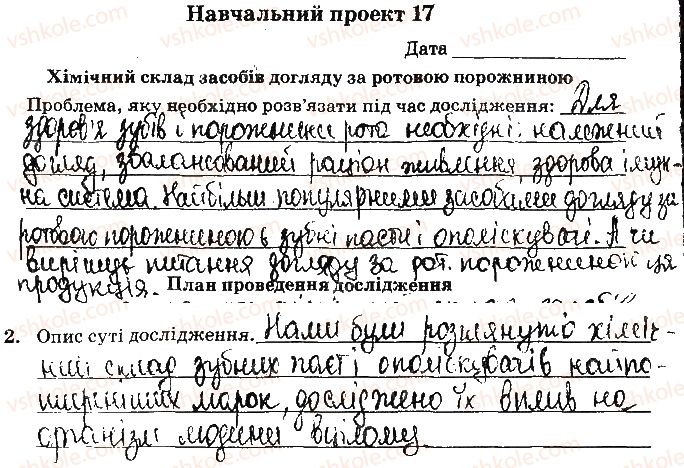 Навчальний проект 17
Дата
Хімічний склад засобів догляду за ротовою порожниною
Проблема, яку необхідно розв'язати під час дослідження: Для
здоров'я зубів і порожнини рота необхідні: належний
догляд, збалансований раціон живлення, здорова імун-
на система. Найбільш популярними засобами догляду за
ротовою порожниною є зубні пасти і ополіскувачі. А чи
вирішує питання догляду за рот. порожниною ця
продукція. План проведення дослідження
2. Опис суті дослідження. Нами були розглянуто хіміч-
ний склад зубних паст і ополіскувачів найпо-
ширеніших марок, досліджено їх вплив на
організм людини вцілому